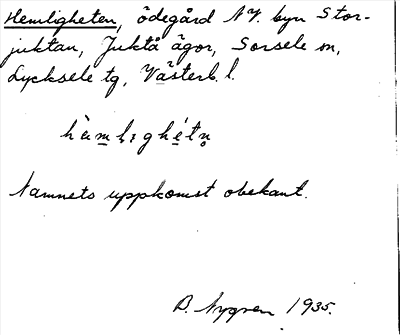 Hemligheten, ödegård NV. byn Stor-
juktan, Juktå ägor, Sorsele sn,
Lycksele tg, Västerb. l.
hèmlıghétn̥
Namnets uppkomst obekant.
B. Nygren 1935.